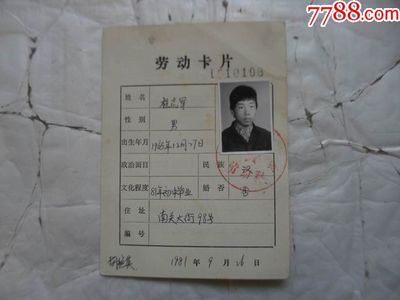 7788.com
劳动卡片
1010108
姓名
性别 男
出生年月 1965年12月27日
政治面目 民族
文化程度 81年初中毕业 婚否 否
住址 南关大街98号
编号
1981年9月26日